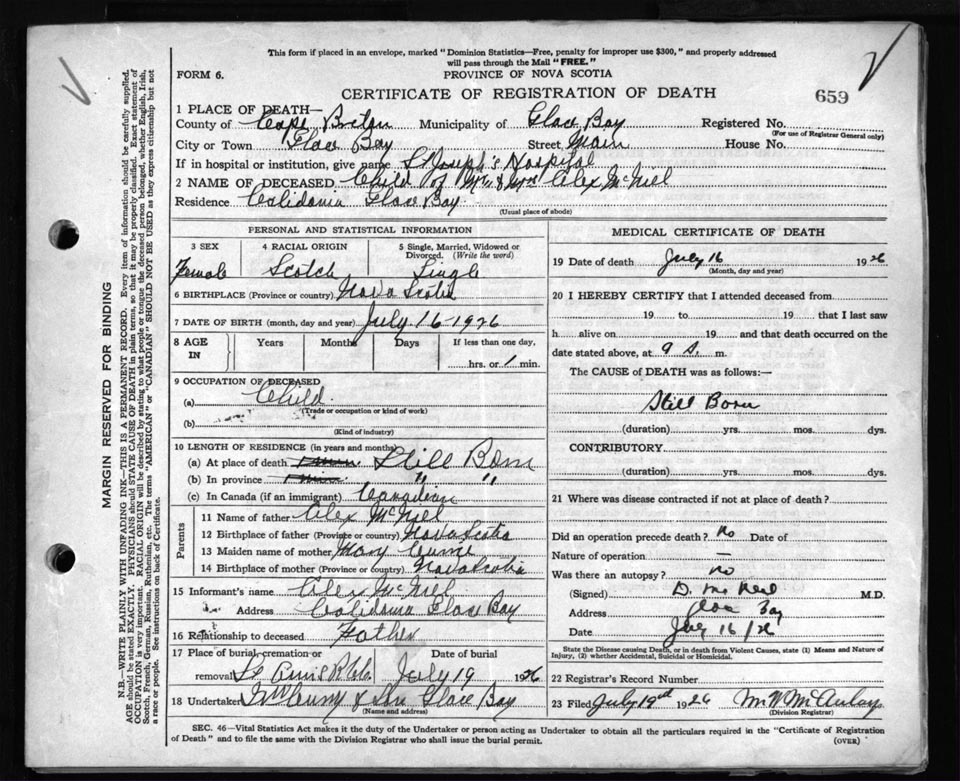 This form if placed in an envelope, marked "Dominion Statistics—Free, penalty for improper use $300," and properly addressed
will pass through the Mail "FREE."
FORM 6.
PROVINCE OF NOVA SCOTIA
CERTIFICATE OF REGISTRATION OF DEATH
659
1 PLACE OF DEATH—
County of Cape Breton Municipality of Glace Bay Registered No.
(For use of Registrar General only)
City or Town Glace Bay Street Main House No.
If in hospital or institution, give name St Joseph's Hospital
2 NAME OF DECEASED Child of Mr & Mrs Alex McNiel
Residence Calidonia Glace Bay
(Usual place of abode)
PERSONAL AND STATISTICAL INFORMATION
3 SEX 4 RACIAL ORIGIN 5 Single, Married, Widowed or
Divorced. (Write the word)
Female Scotch Single
6 BIRTHPLACE (Province or country) Nova Scotia
7 DATE OF BIRTH (month, day and year) July 16-1926
8 AGE IN Years Months Days If less than one day,
hrs. or 1 min.
9 OCCUPATION OF DECEASED
(a) Child
(Trade or occupation or kind of work)
(b)
(Kind of industry)
10 LENGTH OF RESIDENCE (in years and months)
(a) At place of death Still Born
(b) In province " "
(c) In Canada (if an immigrant) Canadian
Parents
11 Name of father Alex McNiel
12 Birthplace of father (Province or country) Nova Scotia
13 Maiden name of mother Mary
14 Birthplace of mother (Province or country) Nova Scotia
15 Informant's name Alex McNiel
Address Calidonia Glace Bay
16 Relationship to deceased Father
17 Place of burial, cremation or Date of burial
removal July 19 1926
18 Undertaker & Son Glace Bay
(Name and address)
MEDICAL CERTIFICATE OF DEATH
19 Date of death July 16 1926
(Month, day and year)
20 I HEREBY CERTIFY that I attended deceased from
19 to 19 that I last saw
h alive on 19 and that death occurred on
date stated above, at 9 a. m.
The CAUSE of DEATH was as follows:—
Still Born
(duration) yrs. mos. dys.
CONTRIBUTORY
(duration) yrs. mos. dys.
21 Where was disease contracted if not at place of death?
Did an operation precede death? No Date of
Nature of operation —
Was there an autopsy? No
(Signed) D. McNeil M.D.
Address Glace Bay
Date July 16/26
State the Disease causing Death, or in death from Violent Causes, state (1) Means and Nature of
Injury, (2) whether Accidental, Suicidal or Homicidal.
22 Registrar's Record Number
23 Filed July 19th 1926 M. W. McAulay
(Division Registrar)
SEC. 46—Vital Statistics Act makes it the duty of the Undertaker or person acting as Undertaker to obtain all the particulars required in the "Certificate of Registration
of Death" and to file the same with the Division Registrar who shall issue the burial permit.
(OVER)
MARGIN RESERVED FOR BINDING
N.B.—WRITE PLAINLY WITH UNFADING INK—THIS IS A PERMANENT RECORD. Every item of information should be carefully supplied.
AGE should be stated EXACTLY. PHYSICIANS should STATE CAUSE OF DEATH in plain terms, so that it may be properly classified. Exact statement of
OCCUPATION is very important. RACIAL ORIGIN will be described by stating to what people or tongue the deceased person belonged, whether English, Irish,
Scotch, French, German, Russian, Ruthenian, etc. The terms "AMERICAN" or "CANADIAN" SHOULD NOT BE USED as they express citizenship but not
a race or people. See instructions on back of Certificate.